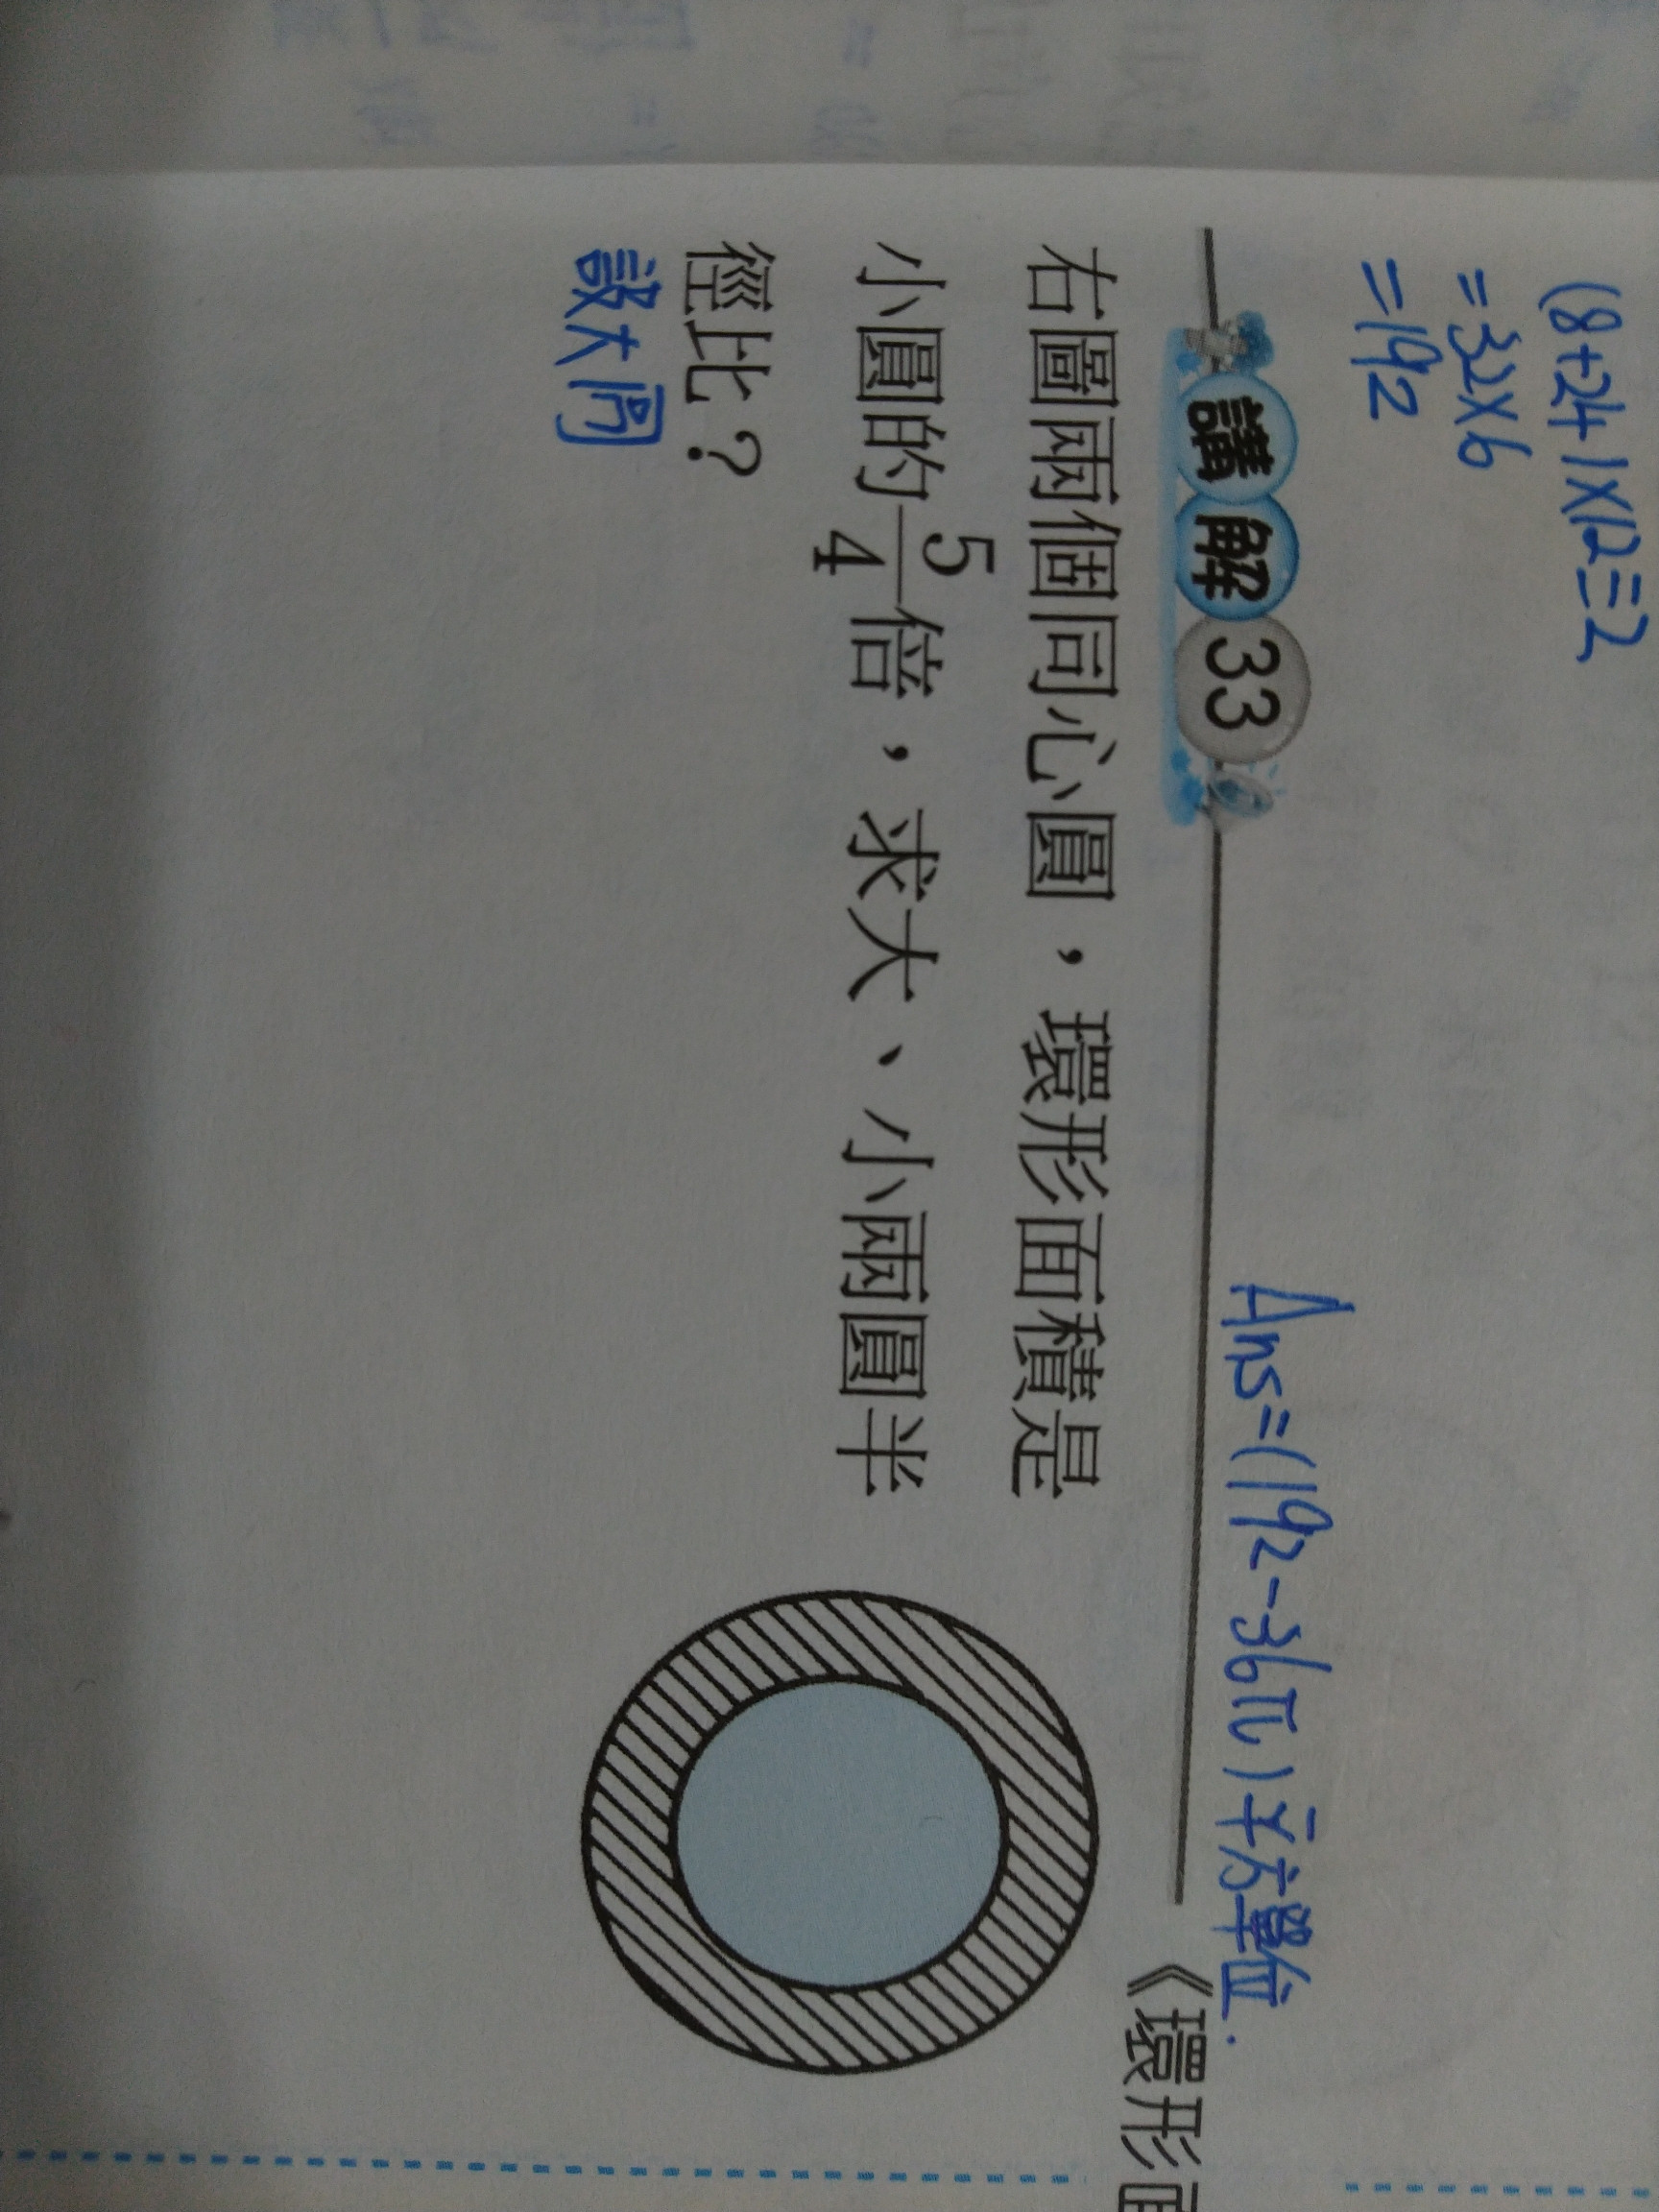 (8+24)×12÷2
=32×6
=192
Ans=(192-36π)平方單位.
講解33
《環形面
右圖兩個同心圓，環形面積是
小圓的5/4倍，求大、小兩圓半
徑比？
設大圓